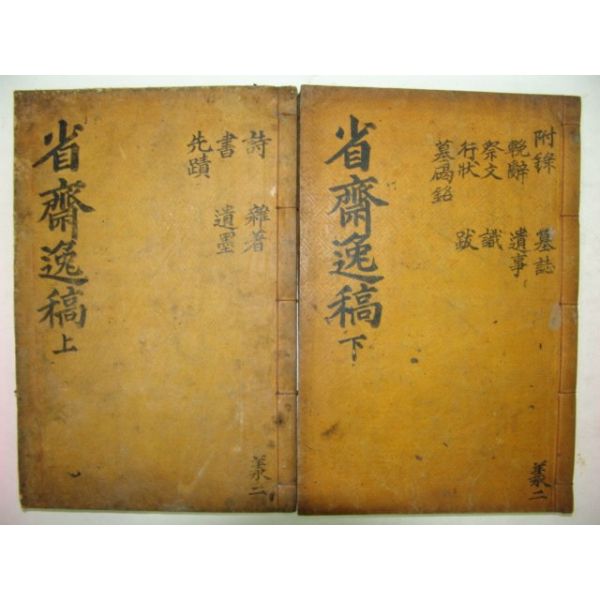 省齋逸稿 上
詩 雜著
書 遺墨
先蹟
二
省齋逸稿 下
附錄 墓誌
輓辭 遺事
祭文 識
行狀 跋
墓碣銘
二